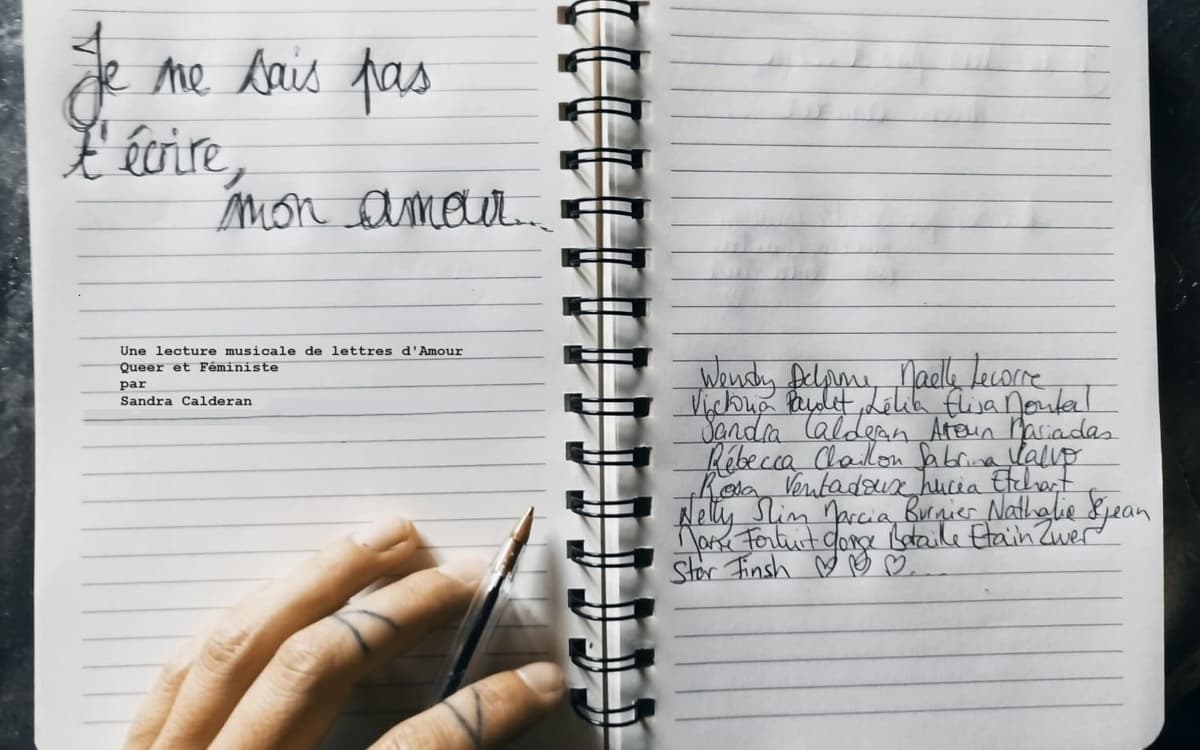 Je ne sais pas
t'écrire,
mon amour...
Une lecture musicale de lettres d'Amour
Queer et Féministe
par
Sandra Calderan
Wendy Delorme, Naelle Lecorre
Victoria Paulet, Lélia Elisa Monteil
Sandra Calderan Atoun Mariadas
Rébecca Chaillon Sabrina Calvo
Rosa Ventadoux Lucia Etchart
Nelly Slim Marcia Burnier Nathalie Sejean
Marie Fortuit Bataille Etaïn Zwer
Star Finsh ♡ ♡ ♡...